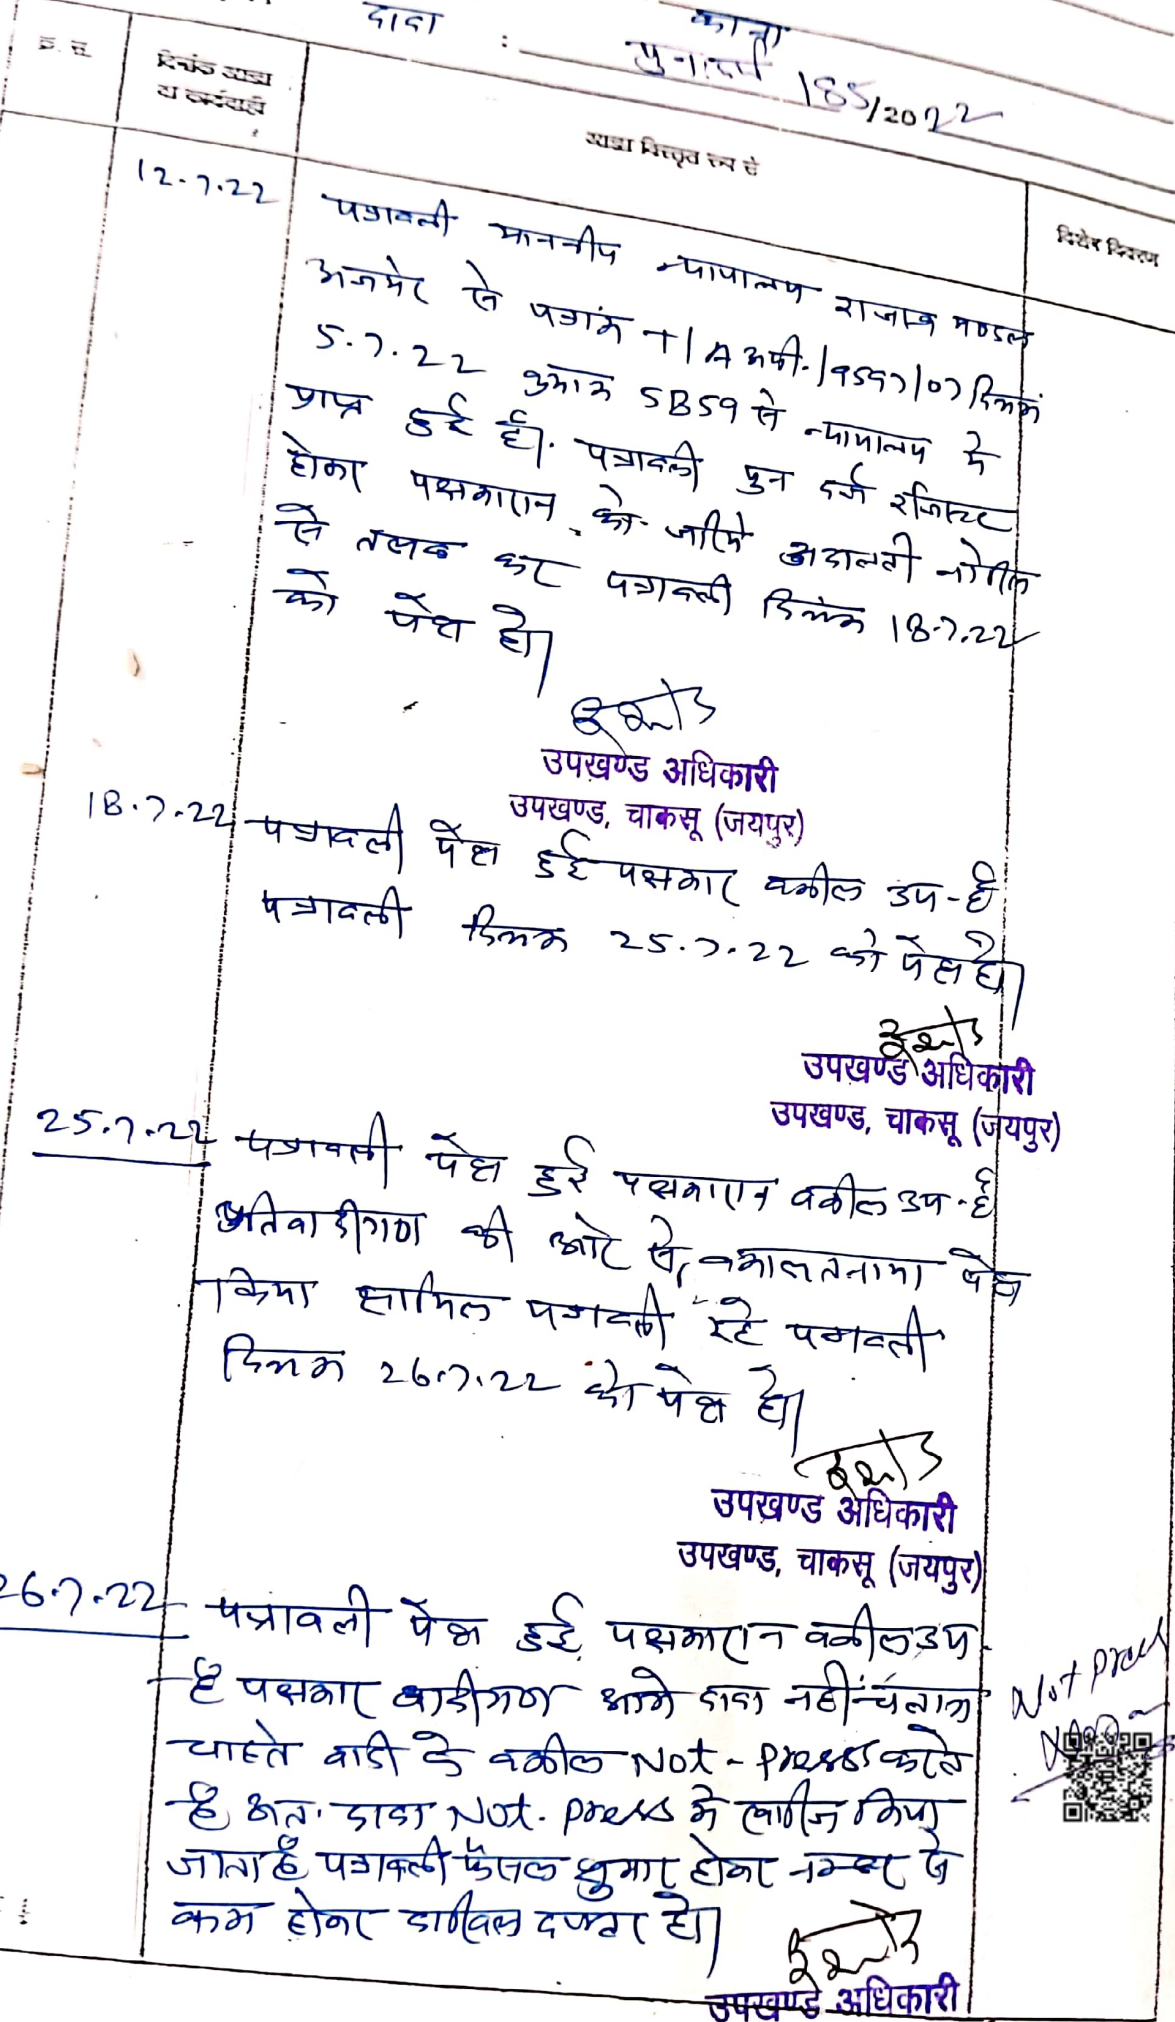 दावा : 185/2022
क्र. सं. दिनांक आज्ञा
या कार्यवाही
आज्ञा विस्तृत रूप से
विशेष विवरण
12.7.22 पत्रावली माननीय न्यायालय राजस्व मण्डल
अजमेर से पत्रांक दिनांक
5.7.22 क्रमांक 5859 से न्यायालय में
प्राप्त हुई है। पत्रावली पुन दर्ज रजिस्टर
होकर पक्षकारान को जरिये अदालती नोटिस
से तलब कर पत्रावली दिनांक 18.7.22
को पेश हो।
उपखण्ड अधिकारी
उपखण्ड, चाकसू (जयपुर)
18.7.22 पत्रावली पेश हुई पक्षकार वकील उप-है
पत्रावली दिनांक 25.7.22 को पेश हो।
उपखण्ड अधिकारी
उपखण्ड, चाकसू (जयपुर)
25.7.22 पत्रावली पेश हुई पक्षकारान वकील उप-है
प्रतिवादीगण की ओर से वकालतनामा पेश
किया शामिल पत्रावली रहे पत्रावली
दिनांक 26.7.22 को पेश हो।
उपखण्ड अधिकारी
उपखण्ड, चाकसू (जयपुर)
26.7.22 पत्रावली पेश हुई पक्षकारान वकील उप-
है पक्षकार वादीगण आगे दावा नहीं चलाना
चाहते वादी के वकील Not-press करते
है अत. दावा Not.press में खारीज किया
जाता है पत्रावली फैसल शुमार होकर नम्बर से
कम होकर दाखिल दफ्तर हो।
Not press
उपखण्ड अधिकारी